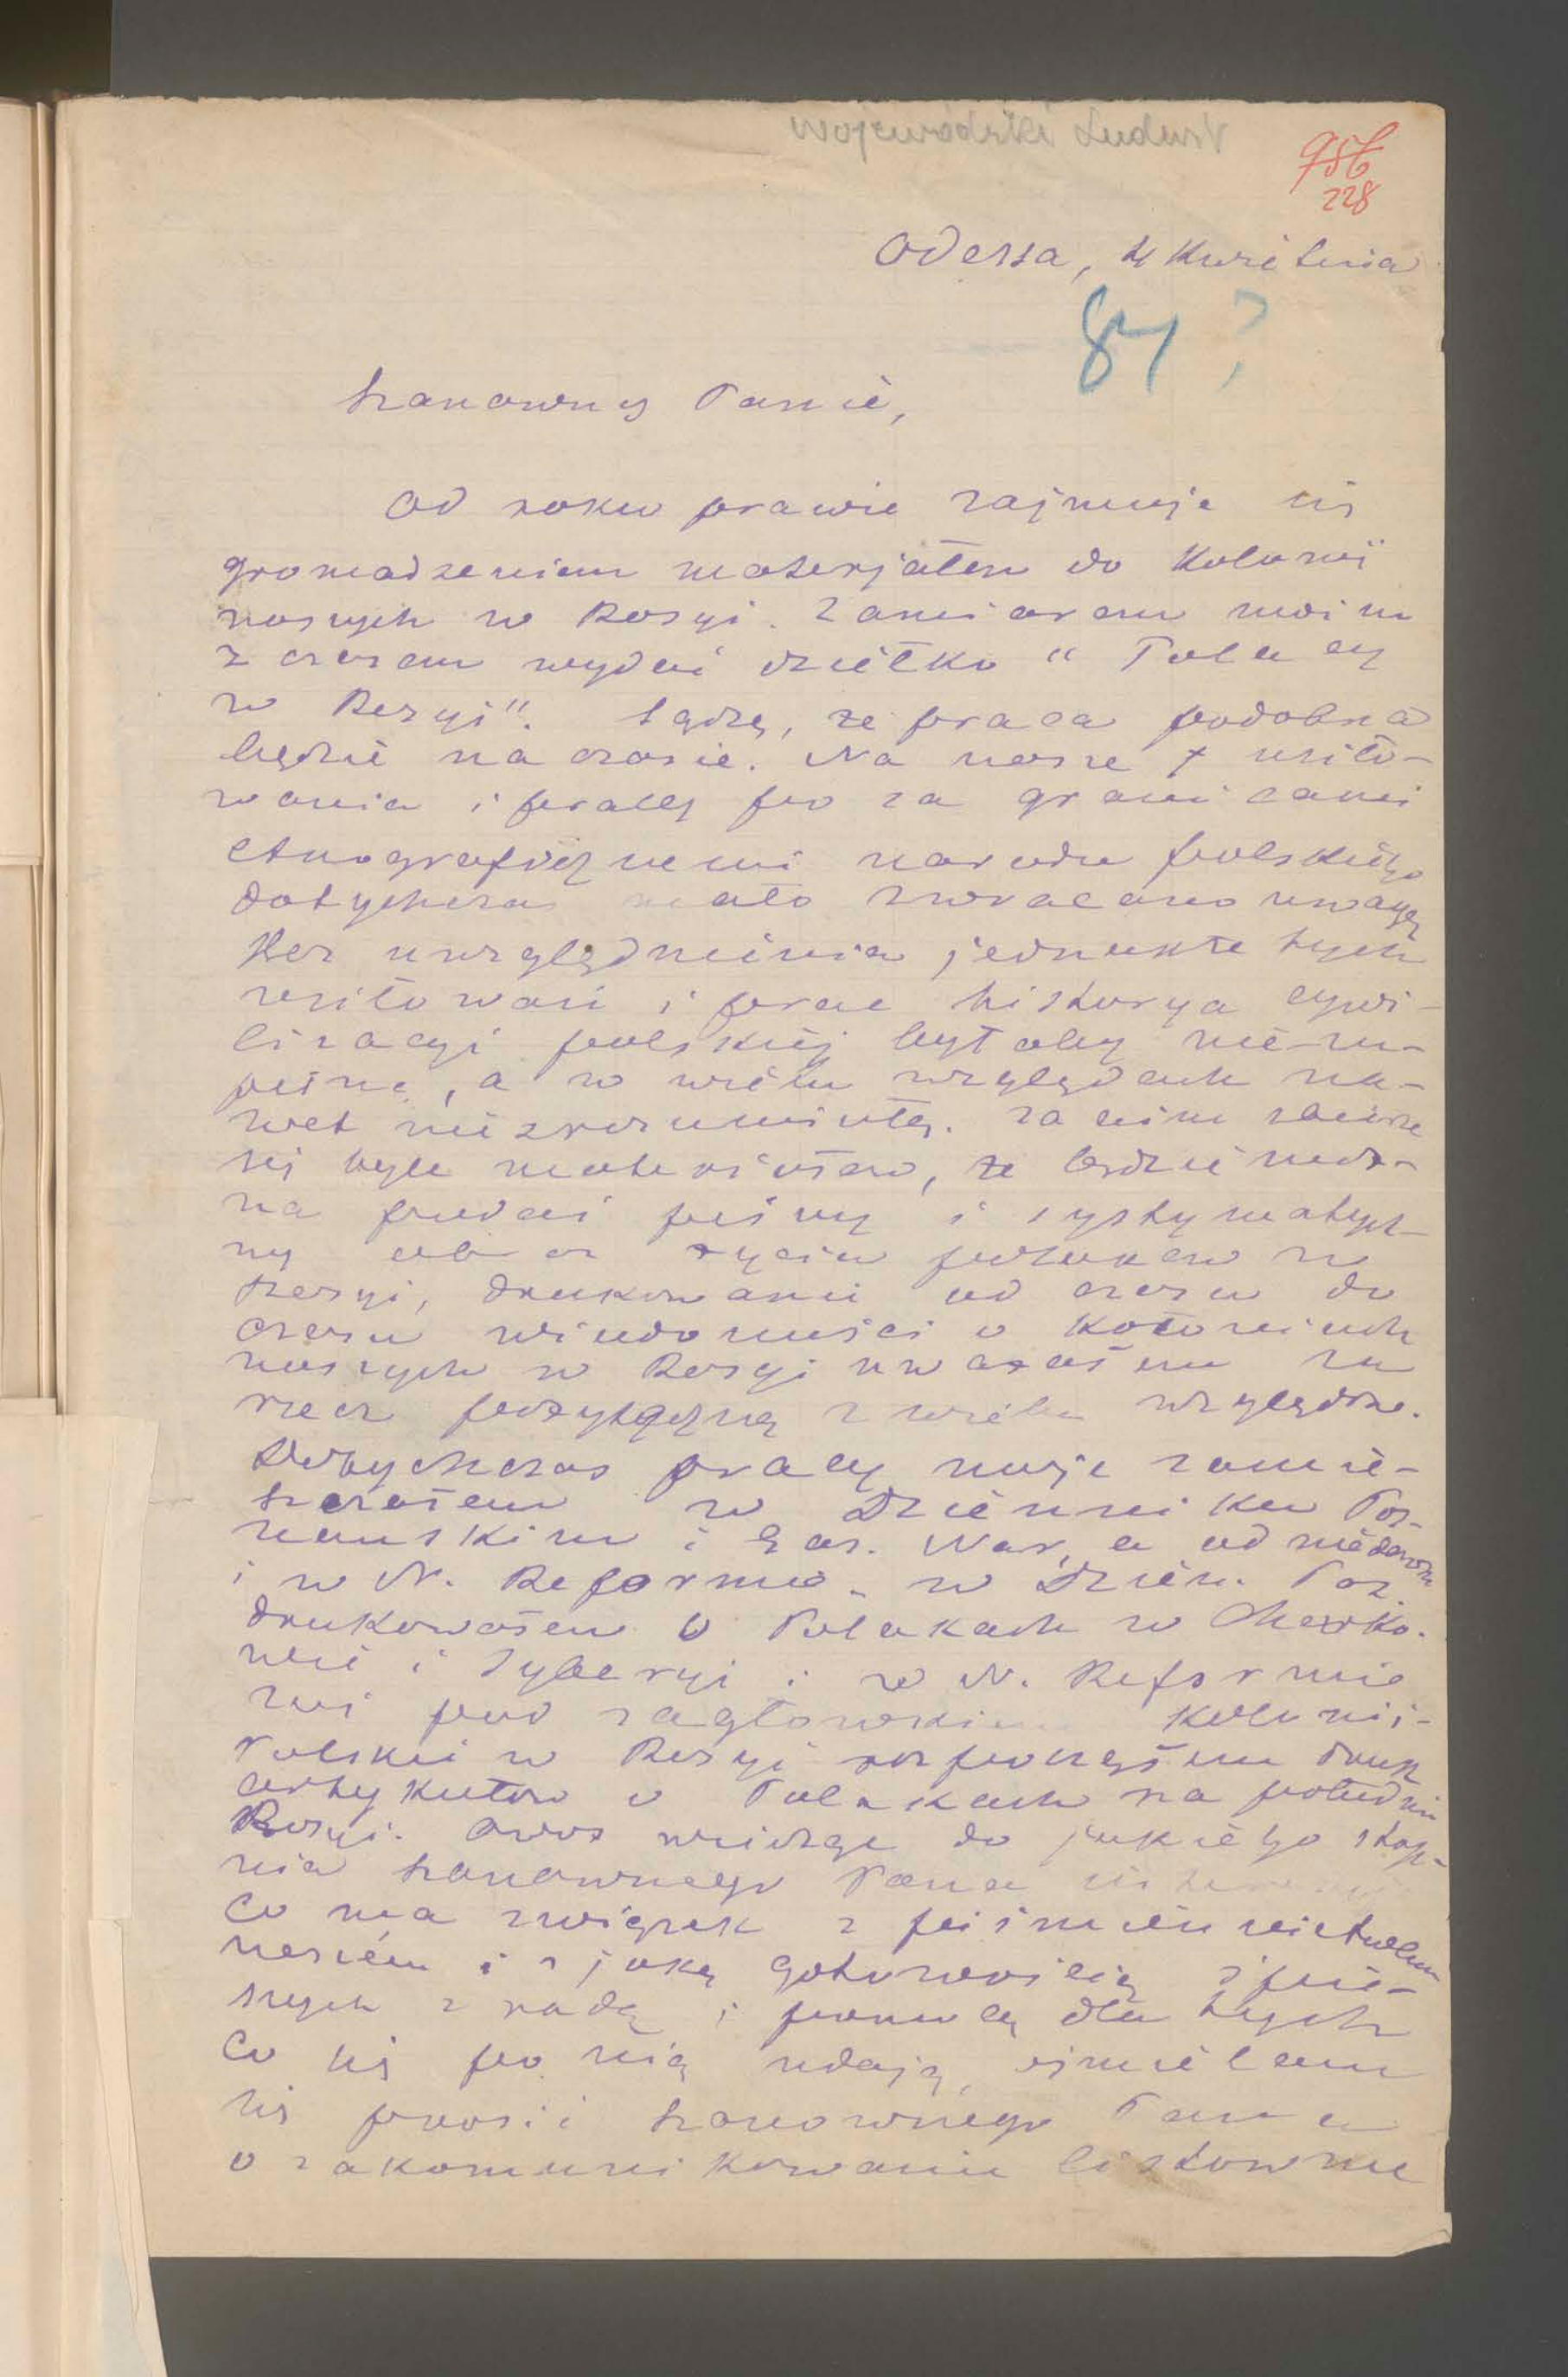 Wojewódzki Ludwik
956
228
Odessa, 4 Kwietnia
84?
Szanowny Panie,
Od roku prawie zajmuję się
gromadzeniem materjałów do Kolonii
naszych w Rosyi. Zamiarem moim
z czasem wydać dziełko "Polacy
w Rosyi". Sądzę, że praca podobna
będzie na czasie. Na nasze usiło-
wania i pracy po za granicami
etnograficznemi narodu polskiego
dotychczas mało zwracano uwagę
Bez uwzględnienia jednakże tych
usiłowań i prac historya cywi-
lizacyi polskiej byłaby nie-zu-
pełną, a w wielu względach na-
wet niezrozumiałą. Zanim zbierze
się tyle materiałów, że będzie moż-
na podać pełny i systematycz-
ny obraz życia polaków w
Rosyi, drukowanie od czasu do
czasu wiadomości o koloniach
naszych w Rosyi uważałem za
rzecz pożyteczną z wielu względów.
Dotychczas pracy moje zamie-
szczałem w Dzienniku Poz-
nańskim i Gaz. Nar, a od niedawna
i w N. Reformie. w Dzien. Poz.
drukowałem o Polakach w Charko-
wie i Syberyi i w N. Reformie
zaś pod zagłowkiem Kolonii-
Polskie w Rosyi rozpocząłem druk
artykułów o Polakach na południu
Rosyi. Owoż wiedząc do jakiego stop-
nia Szanownego Pana
co ma związek z piśmiennictwem
naszem i z jaką gotowością śpie-
szysz z radą i pomocą dla tych
co się po nią udają, ośmielam
się prosić Szanownego Pana
o zakomunikowanie listownie